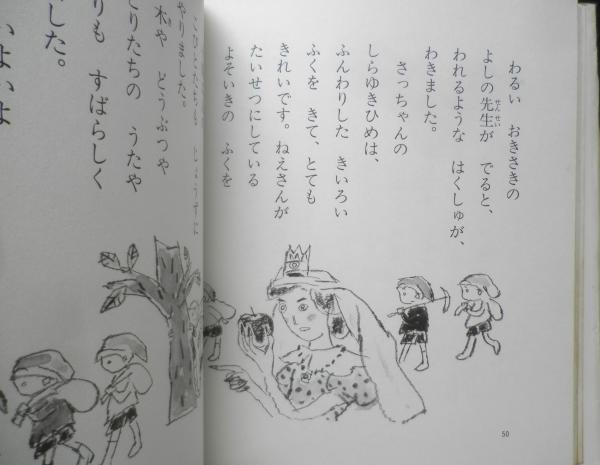 わるい おきさきの
よしの先生が でると、
せんせい
われるような はくしゅが、
わきました。
さっちゃんの
しらゆきひめは、
ふんわりした きいろい
ふくを きて、とても
きれいです。ねえさんが
たいせつにしている
よそいきの ふくを
50
じょうずに
やりました。
木や どうぶつや
りたちの うたや
りも すばらしく
した。
いよいよ